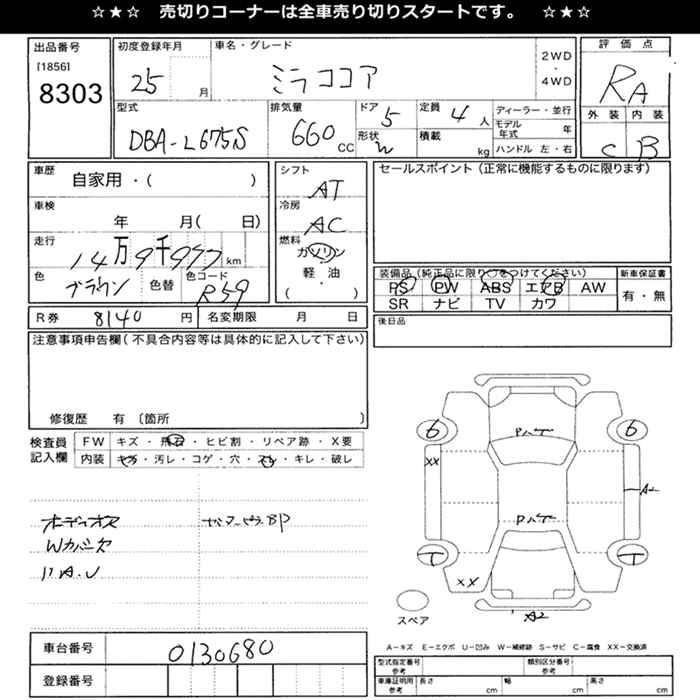 ☆★☆ 売切りコーナーは全車売り切りスタートです。 ☆★☆
出品番号
[1856]
8303
初度登録年月
25 月
車名・グレード
ミラココア
2WD
・
4WD
評価点
RA
外装 内装
C B
型式
DBA-L675S
排気量
660 CC
ドア 5
形状 W
定員 4 人
積載 kg
ディーラー・並行
モデル年式 年
ハンドル 左・右
車歴
自家用・( )
車検
年 月( 日)
走行
14万9千977 km
色
ブラウン
色替
色コード
R59
シフト
AT
冷房
AC
燃料
ガソリン
軽・油
( )
セールスポイント (正常に機能するものに限ります)
装備品 (純正品に限り○をつけてください)
PS PW ABS エアB AW
SR ナビ TV カワ
新車保証書
有・無
R券 8140 円
名変期限 月 日
後日品
注意事項申告欄 (不具合内容等は具体的に記入して下さい)
修復歴 有 〔箇所 〕
検査員記入欄
FW キズ・飛石・ヒビ割・リペア跡・X要
内装 キズ・汚レ・コゲ・穴・スレ・キレ・破レ
オーディオス
Wカバー欠
6 6
XX
A2
T T
XX
A2
スペア
A-キズ E-エクボ U-凹み W-補修跡 S-サビ C-腐食 XX-交換済
車台番号
0130680
登録番号
型式指定番号 参考
類別区分番号 参考
車庫証明用 参考
長さ cm
幅 cm
高さ cm